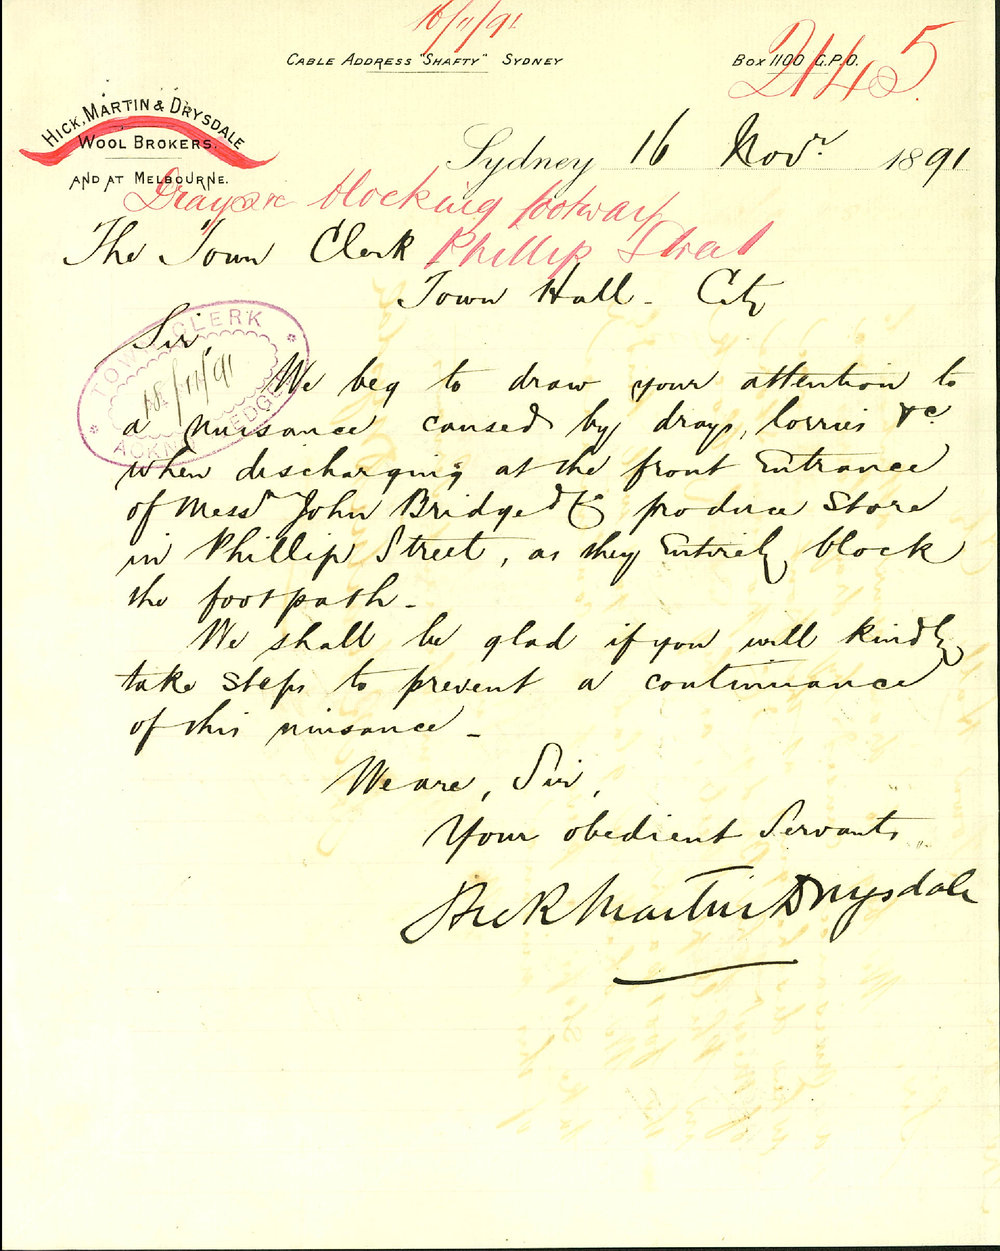 16/11/91
CABLE ADDRESS "SHAFTY" SYDNEY
BOX 1100 G.P.O.
2145
HICK, MARTIN & DRYSDALE
WOOL BROKERS.
AND AT MELBOURNE.
Sydney 16 Novr 1891
Drays &c blocking footway
Phillip Street
The Town Clerk
Town Hall - City
Sir,
TOWN CLERK
18/11/91
ACKNOWLEDGED
We beg to draw your attention to
a nuisance caused by drays, lorries &c.
when discharging at the front Entrance
of Messrs John Bridge & Co produce Store
in Phillip Street, as they Entirely block
the footpath -
We shall be glad if you will kindly
take steps to prevent a continuance
of this nuisance -
We are, Sir,
Your obedient Servants
Hick Martin & Drysdale